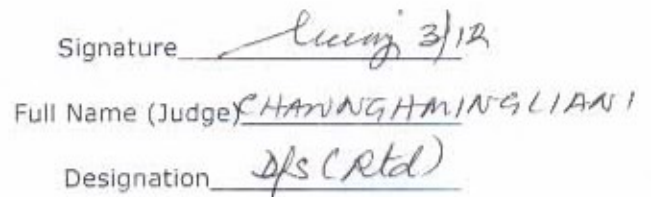 Signature 3/12
Full Name (Judge) CHAWNGHMINGLIANI
Designation D/S (Rtd)